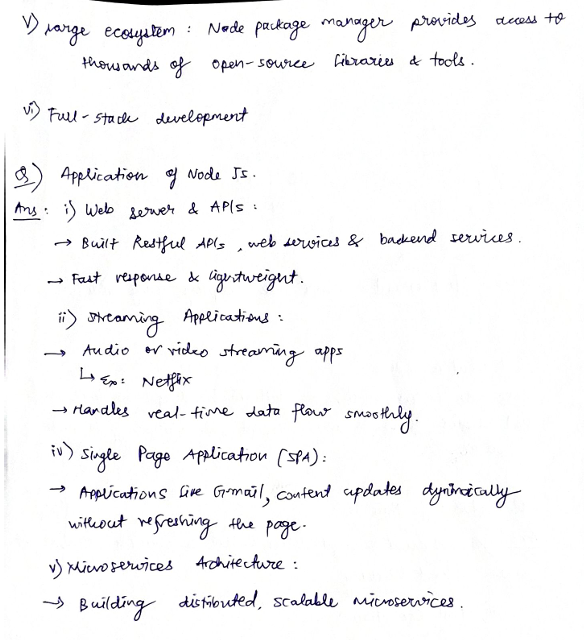 v) Large ecosystem : Node package manager provides access to
thousands of open-source libraries & tools.
vi) Full-stack development
Q) Application of Node Js.
Ans : i) Web server & APIs :
→ Built Restful APIs , web services & backend services.
→ Fast response & lightweight.
ii) Streaming Applications :
→ Audio or video streaming apps
↳ Ex: Netflix
→ Handles real-time data flow smoothly.
iv) Single Page Application (SPA):
→ Applications like G-mail, content updates dynimically
without refreshing the page.
v) Microservices Architecture :
→ Building distributed, scalable microservices.